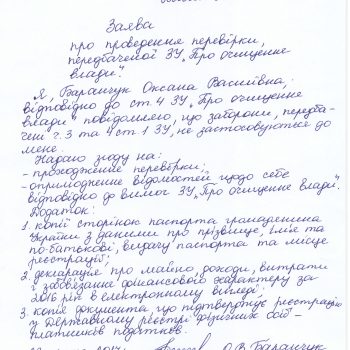 Заява
про проведення перевірки,
передбаченої ЗУ „Про очищення
влади".
Я, Баранчук Оксана Василівна,
відповідно до ст. 4 ЗУ „Про очищення
влади" повідомляю, що заборони, передба-
чені ч. 3 та 4 ст. 1 ЗУ, не застосовуються до
мене.
Надаю згоду на:
- проходження перевірки;
- оприлюднення відомостей щодо себе
відповідно до вимог ЗУ „Про очищення влади".
Додаток:
1. копії сторінок паспорта громадянина
України з даними про прізвище, ім'я та
по-батькові, видачу паспорта та місце
реєстрації;
2. декларація про майно, доходи, витрати
і зобов'язання фінансового характеру за
2016 рік в електронному вигляді;
3. копія документа, що підтверджує реєстрацію
у Державному реєстрі фізичних осіб -
платників податків.
О.В. Баранчук